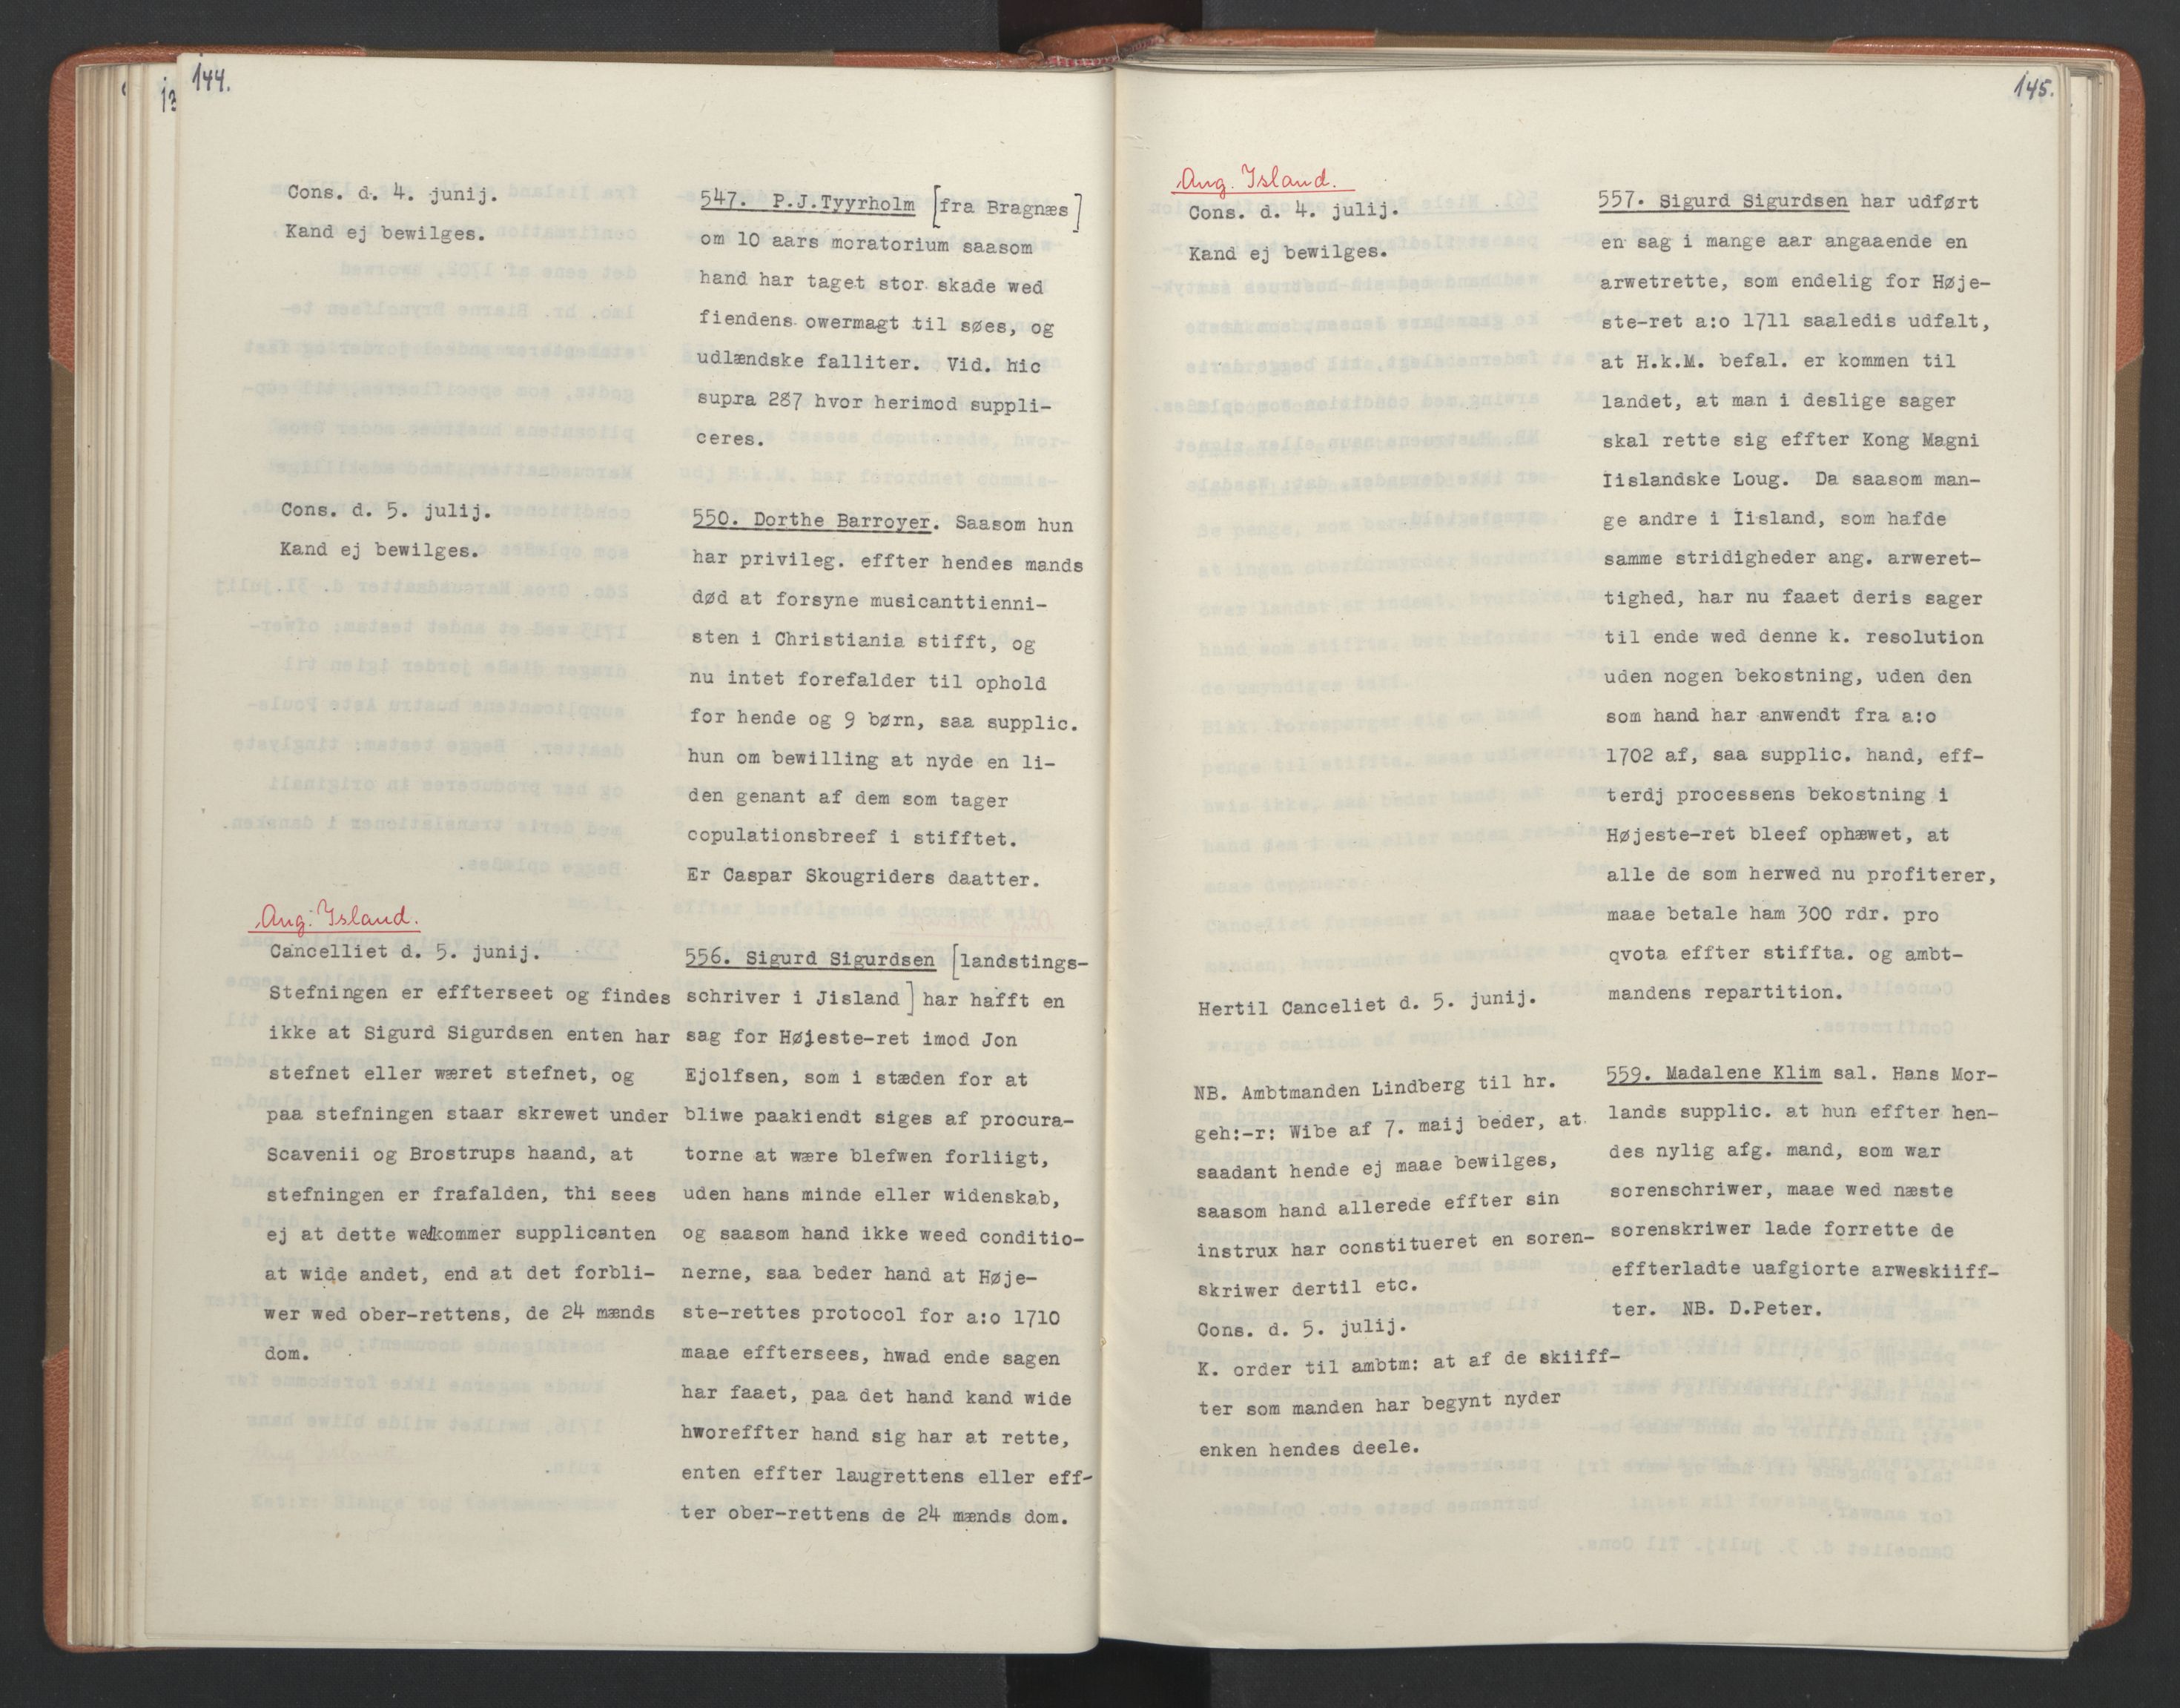 144.
Cons. d. 4. junij.
Kand ej bewilges.
547. P.J.Tyyrholm [fra Bragnæs]
om 10 aars moratorium saasom
hand har taget stor skade wed
fiendens owermagt til søes, og
udlændske falliter. Vid. hic
supra 287 hvor herimod suppli-
ceres.
Cons. d. 5. julij.
Kand ej bewilges.
550. Dorthe Barroyer. Saasom hun
har privileg. effter hendes mands
død at forsyne musicanttienni-
sten i Christiania stifft, og
nu intet forefalder til ophold
for hende og 9 børn, saa supplic.
hun om bewilling at nyde en li-
den genant af dem som tager
copulationsbreef i stifftet.
Er Caspar Skougriders daatter.
Ang. Island.
Cancelliet d. 5. junij.
Stefningen er effterseet og findes
ikke at Sigurd Sigurdsen enten har
stefnet eller wæret stefnet, og
paa stefningen staar skrewet under
Scavenii og Brostrups haand, at
stefningen er frafalden, thi sees
ej at dette wedkommer supplicanten
at wide andet, end at det forbli-
wer wed ober-rettens, de 24 mænds
dom.
556. Sigurd Sigurdsen [landstings-
schriver i Jisland] har hafft en
sag for Højeste-ret imod Jon
Ejolfsen, som i stæden for at
bliwe paakiendt siges af procura-
torne at wære blefwen forliigt,
uden hans minde eller widenskab,
og saasom hand ikke weed conditio-
nerne, saa beder hand at Høje-
ste-rettes protocol for a:o 1710
maae efftersees, hwad ende sagen
har faaet, paa det hand kand wide
hworeffter hand sig har at rette,
enten effter laugrettens eller eff-
ter ober-rettens de 24 mænds dom.
145.
Ang. Island.
Cons. d. 4. julij.
Kand ej bewilges.
557. Sigurd Sigurdsen har udført
en sag i mange aar angaaende en
arwetrette, som endelig for Høje-
ste-ret a:o 1711 saaledis udfalt,
at H.k.M. befal. er kommen til
landet, at man i deslige sager
skal rette sig effter Kong Magni
Iislandske Loug. Da saasom man-
ge andre i Iisland, som hafde
samme stridigheder ang. arweret-
tighed, har nu faaet deris sager
til ende wed denne k. resolution
uden nogen bekostning, uden den
som hand har anwendt fra a:o
1702 af, saa supplic. hand, eff-
terdj processens bekostning i
Højeste-ret bleef ophæwet, at
alle de som herwed nu profiterer,
maae betale ham 300 rdr. pro
qvota effter stiffta. og ambt-
mandens repartition.
Hertil Canceliet d. 5. junij.
NB. Ambtmanden Lindberg til hr.
geh:-r: Wibe af 7. maij beder, at
saadant hende ej maae bewilges,
saasom hand allerede effter sin
instrux har constitueret en soren-
skriwer dertil etc.
Cons. d. 5. julij.
K. order til ambtm: at af de skiiff-
ter som manden har begynt nyder
enken hendes deele.
559. Madalene Klim sal. Hans Mor-
lands supplic. at hun effter hen-
des nylig afg. mand, som war
sorenschriwer, maae wed næste
sorenskriwer lade forrette de
effterladte uafgiorte arweskiiff-
ter. NB. D.Peter.